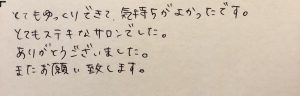 とてもゆっくりできて、気持ちがよかったです。
とてもステキなサロンでした。
ありがとうございました。
またお願い致します。